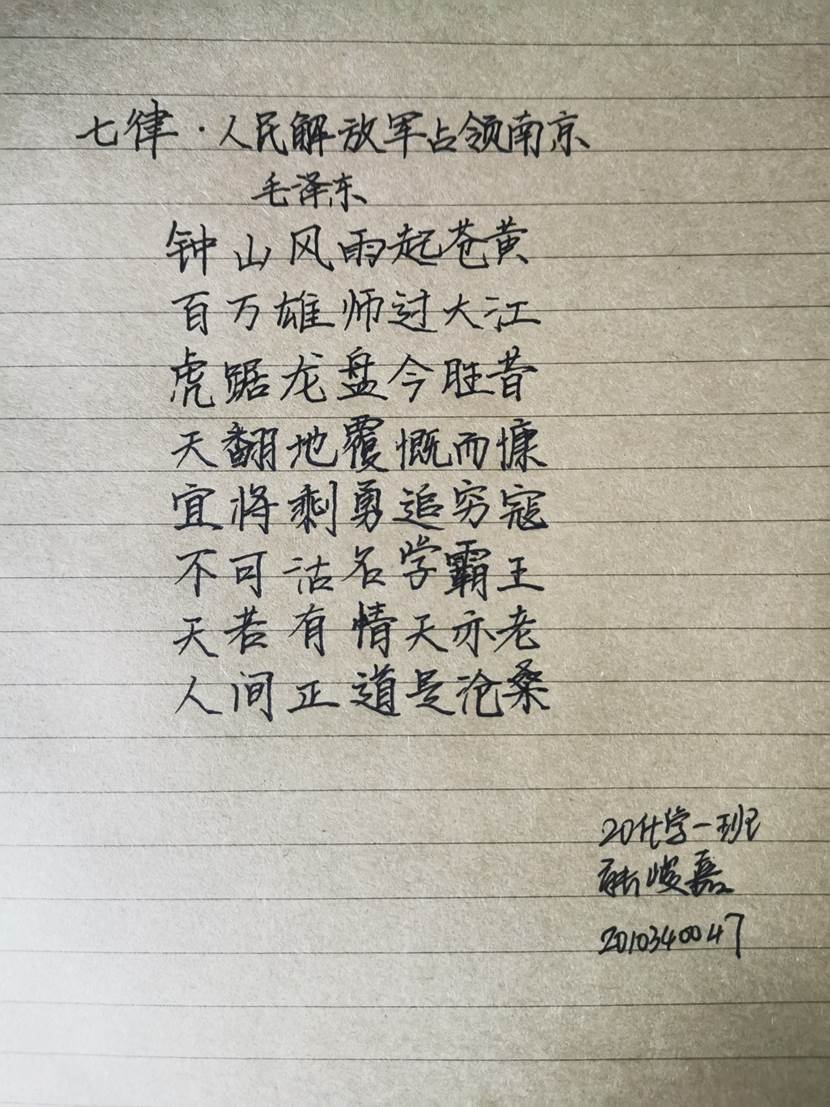 七律·人民解放军占领南京
毛泽东
钟山风雨起苍黄
百万雄师过大江
虎踞龙盘今胜昔
天翻地覆慨而慷
宜将剩勇追穷寇
不可沽名学霸王
天若有情天亦老
人间正道是沧桑
20化学一班
韩峻嘉
2010340047